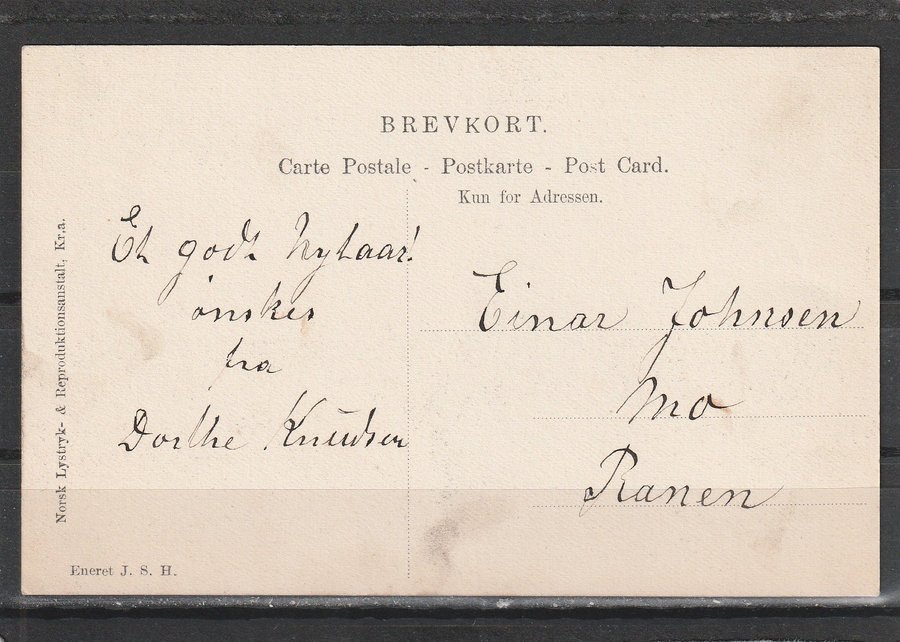 BREVKORT.
Carte Postale - Postkarte - Post Card.
Kun for Adressen.
Et godt Nytaar!
ønskes
fra
Dorthe Knudsen
Einar Johnsen
Mo
Ranen
Norsk Lystryk- & Reproduktionsanstalt, Kr.a.
Eneret J. S. H.